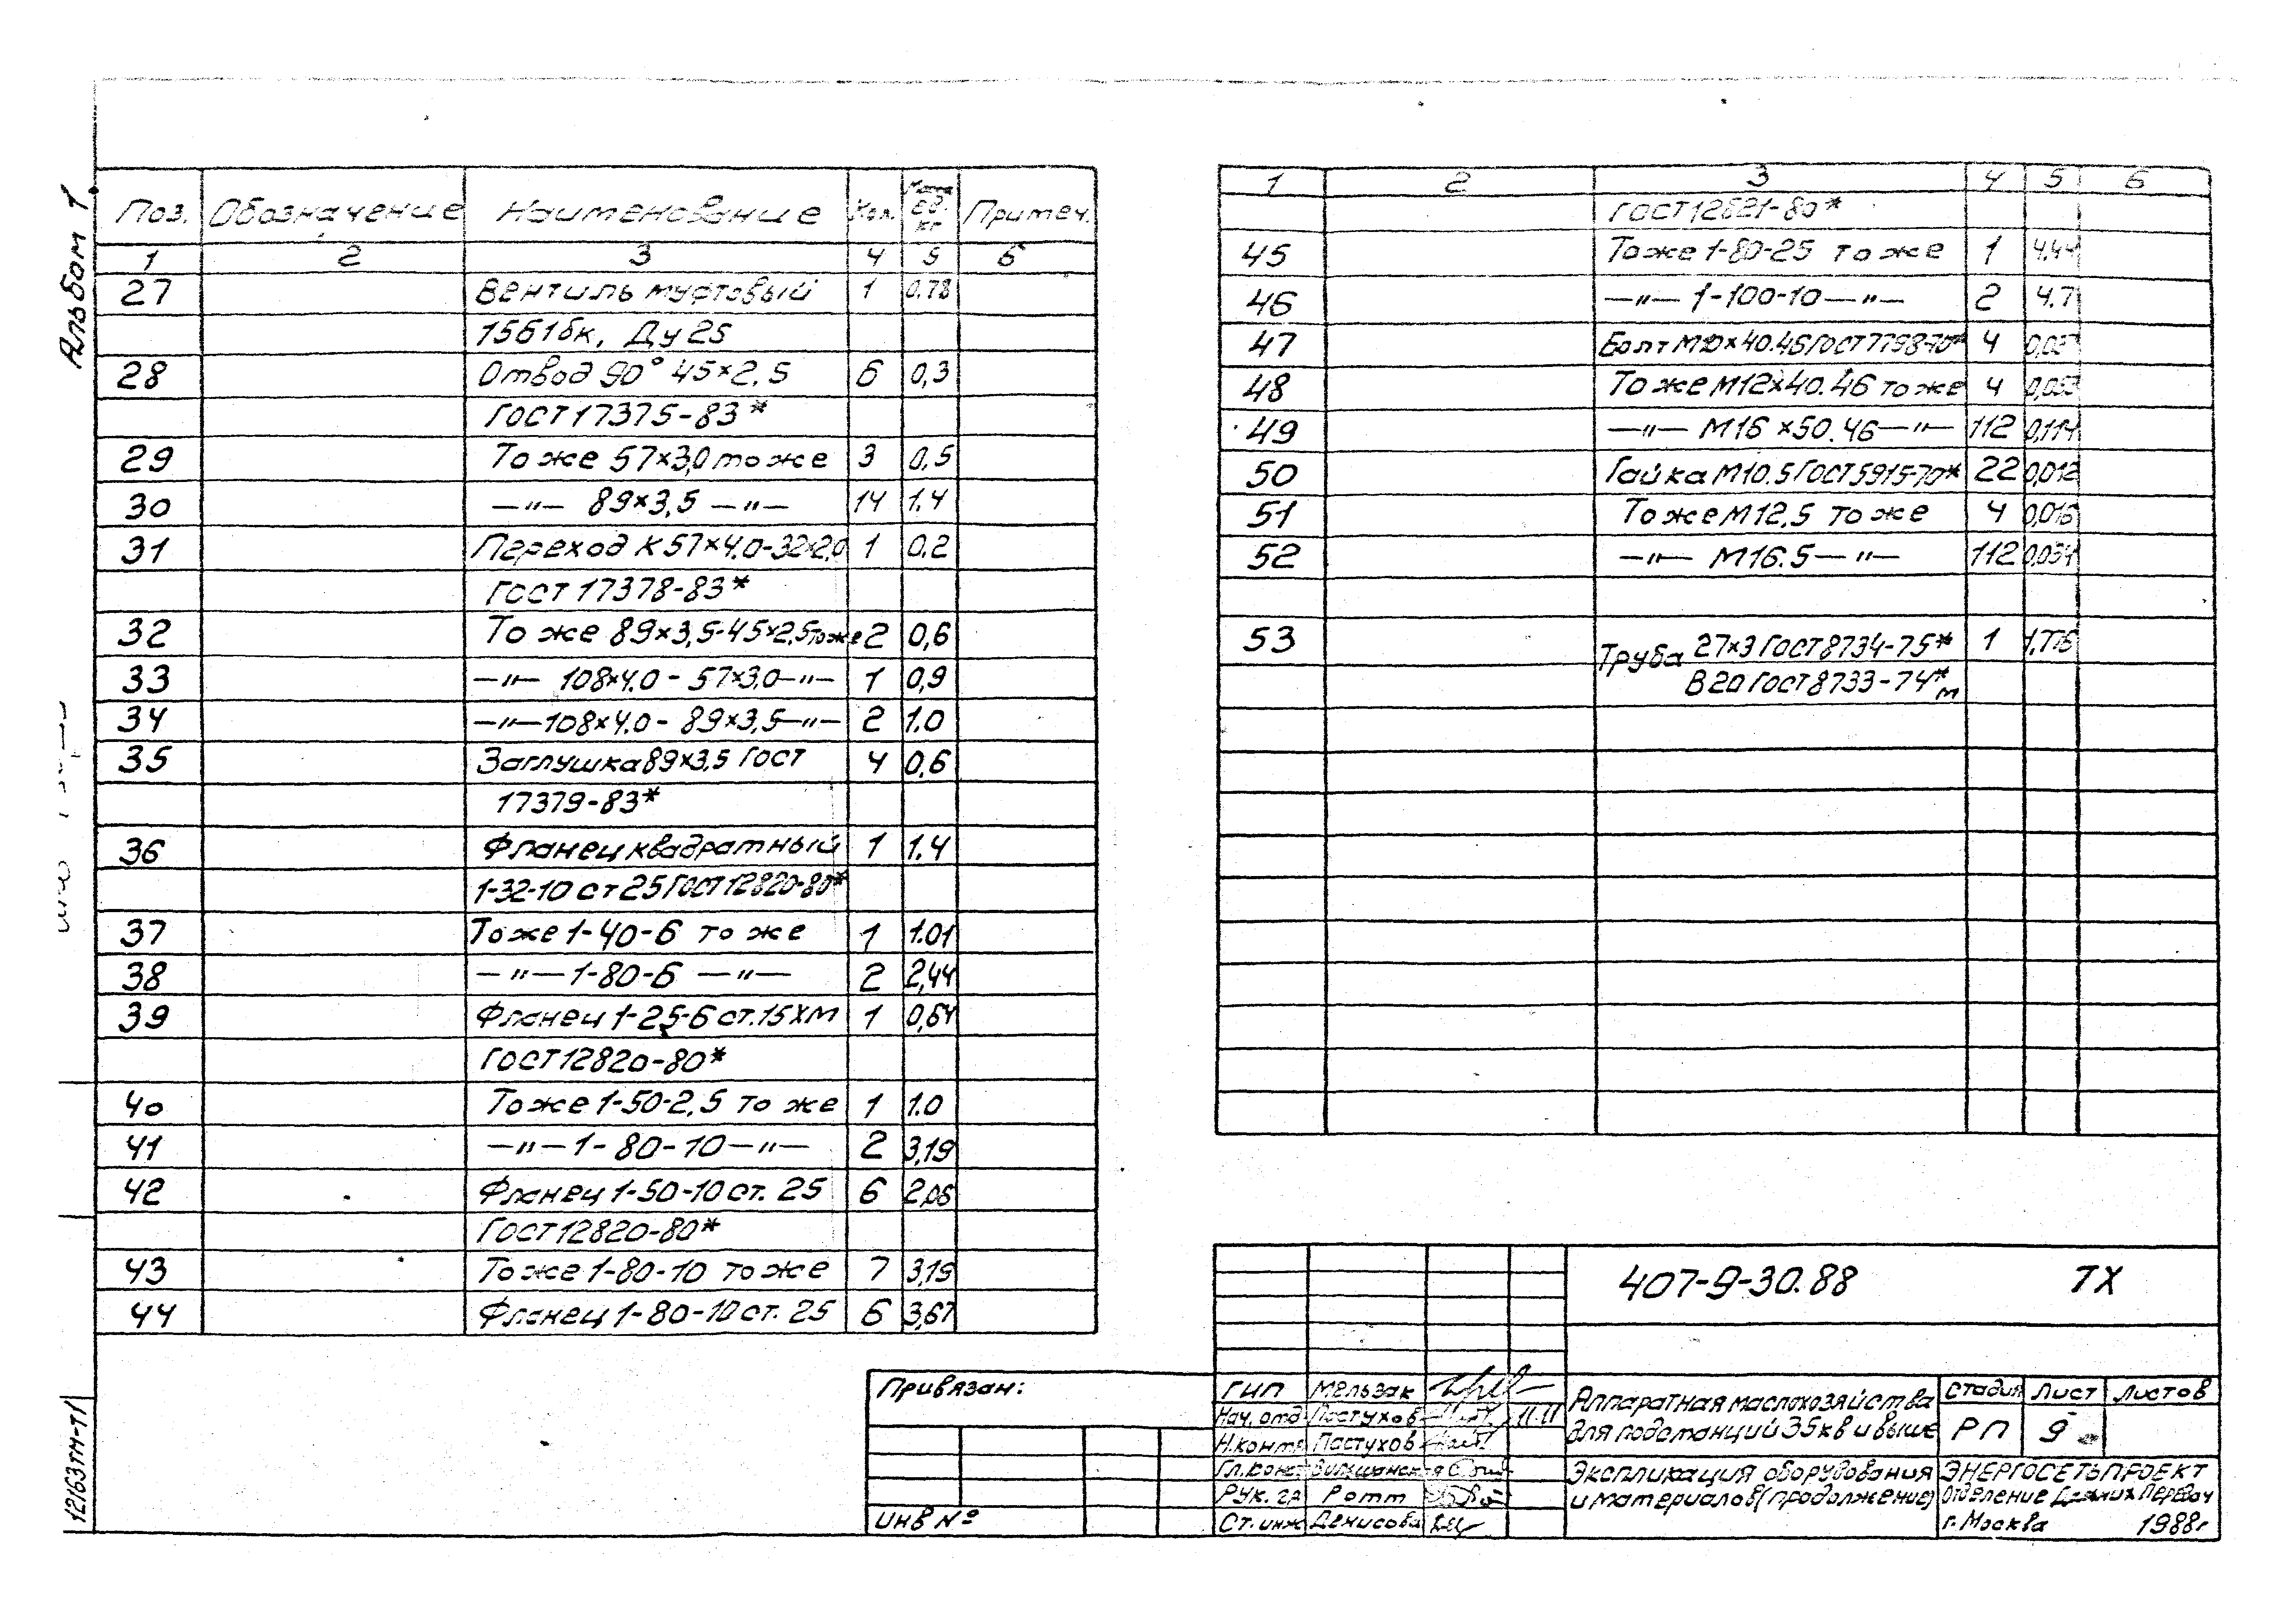 Альбом 1.
Поз. Обозначение Наименование Кол. Масса ед. кг Примеч.
1 2 3 4 5 6
27 Вентиль муфтовый 1 0,78
15б1бк, Ду 25
28 Отвод 90° 45×2,5 6 0,3
ГОСТ 17375-83*
29 То же 57×3,0 то же 3 0,5
30 —"— 89×3,5 —"— 14 1.4
31 Переход К 57×4.0-32×2,0 1 0.2
ГОСТ 17378-83*
32 То же 89×3,5-45×2,5 то же 2 0,6
33 —"— 108×4.0 - 57×3.0 —"— 1 0,9
34 —"— 108×4.0 - 89×3,5 —"— 2 1.0
35 Заглушка 89×3,5 ГОСТ 4 0,6
17379-83*
36 Фланец квадратный 1 1.4
1-32-10 ст 25 ГОСТ 12820-80*
37 То же 1-40-6 то же 1 1.01
38 —"— 1-80-6 —"— 2 2,44
39 Фланец 1-25-6 ст.15ХМ 1 0,64
ГОСТ 12820-80*
40 То же 1-50-2,5 то же 1 1.0
41 —"— 1-80-10 —"— 2 3,19
42 Фланец 1-50-10 ст. 25 6 2,06
ГОСТ 12820-80*
43 То же 1-80-10 то же 7 3,19
44 Фланец 1-80-10 ст. 25 6 3,67
1 2 3 4 5 6
ГОСТ 12821-80*
45 То же 1-80-25 то же 1 4.44
46 —"— 1-100-10 —"— 2 4.7
47 Болт М10×40.46 ГОСТ 7798-70* 4
48 То же М12×40.46 то же 4 0,053
49 —"— М16×50.46 —"— 112 0,114
50 Гайка М10.5 ГОСТ 5915-70* 22 0,012
51 То же М12.5 то же 4 0,016
52 —"— М16.5 —"— 112 0,034
53 Труба 27×3 ГОСТ 8734-75* 1 1,776
В20 ГОСТ 8733-74* м
407-9-30.88 ТХ
Привязан:
ИНВ №
ГИП Мельзак
Нач. отд. Пастухов 11.11
Н.контр Пастухов
Гл.конс
Рук. гр Ротт
Ст. инж Денисова
Аппаратная маслохозяйства
для подстанций 35 кв и выше
Стадия Лист Листов
РП 9
Экспликация оборудования
и материалов (продолжение)
ЭНЕРГОСЕТЬПРОЕКТ
Отделение Дальних Передач
г. Москва 1988г
12163тм-т1